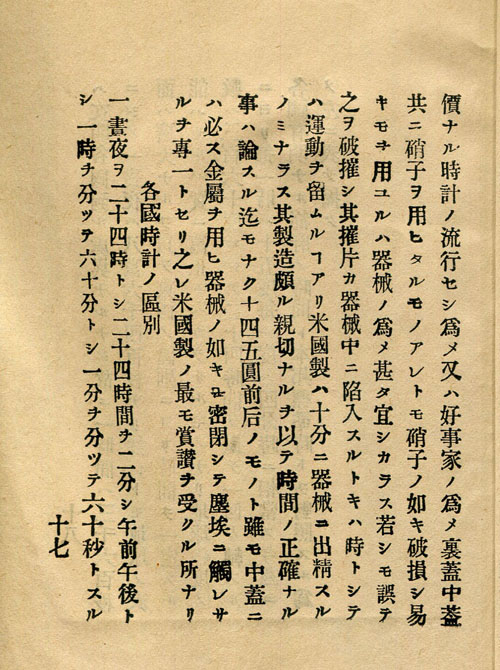 價ナル時計ノ流行セシ爲メ又ハ好事家ノ爲メ裏蓋中葢
共ニ硝子ヲ用ヒタルモノアレトモ硝子ノ如キ破損シ易
キモヲ用ユルハ器械ノ爲メ甚タ宜シカラス若シモ誤テ
之ヲ破摧シ其摧片カ器械中ニ陷入スルトキハ時トシテ
ハ運動ヲ留ムルヿアリ米國製ハ十分ニ器械ニ出精スル
ノミナラス其製造頗ル親切ナルヲ以テ時間ノ正確ナル
事ハ論スル迄モナク十四五圓前后ノモノト雖モ中蓋ニ
ハ必ス金屬ヲ用ヒ器械ノ如キヱ密閉シテ塵埃ニ觸レサ
ルヲ專一トセリ之レ米國製ノ最モ賞讃ヲ受クル所ナリ
各國時計ノ區別
一晝夜ヲ二十四時トシ二十四時間ヲ二分シ午前午後ト
シ一時ヲ分ツテ六十分トシ一分ヲ分ツテ六十秒トスル
十七